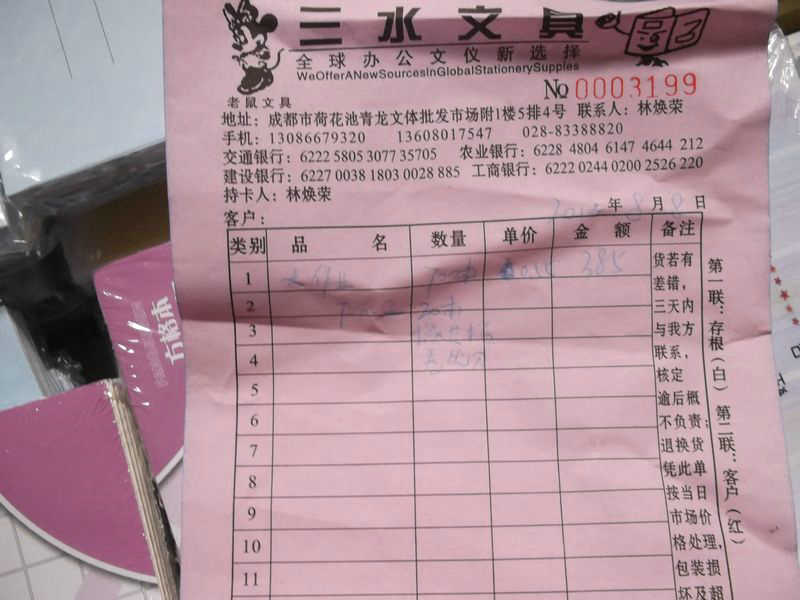 三水文具
全球办公文仪新选择
WeOfferANewSourcesInGlobalStationerySupples
老鼠文具
No 0003199
地址：成都市荷花池青龙文体批发市场附1楼5排4号 联系人：林焕荣
手机：13086679320 13608017547 028-83388820
交通银行：6222 5805 3077 35705 农业银行：6228 4804 6147 4644 212
建设银行：6227 0038 1803 0028 885 工商银行：6222 0244 0200 2526 220
持卡人：林焕荣
客户： 年 8 月 8 日
类别 品 名 数量 单价 金 额 备注
1 大作业 055 385
2
3
4
5
6
7
8
9
10
11
货若有
差错，
三天内
与我方
联系，
核定
逾后概
不负责；
退换货
凭此单
按当日
市场价
格处理，
包装损
坏及超
第一联：存根（白） 第二联：客户（红）
方格本